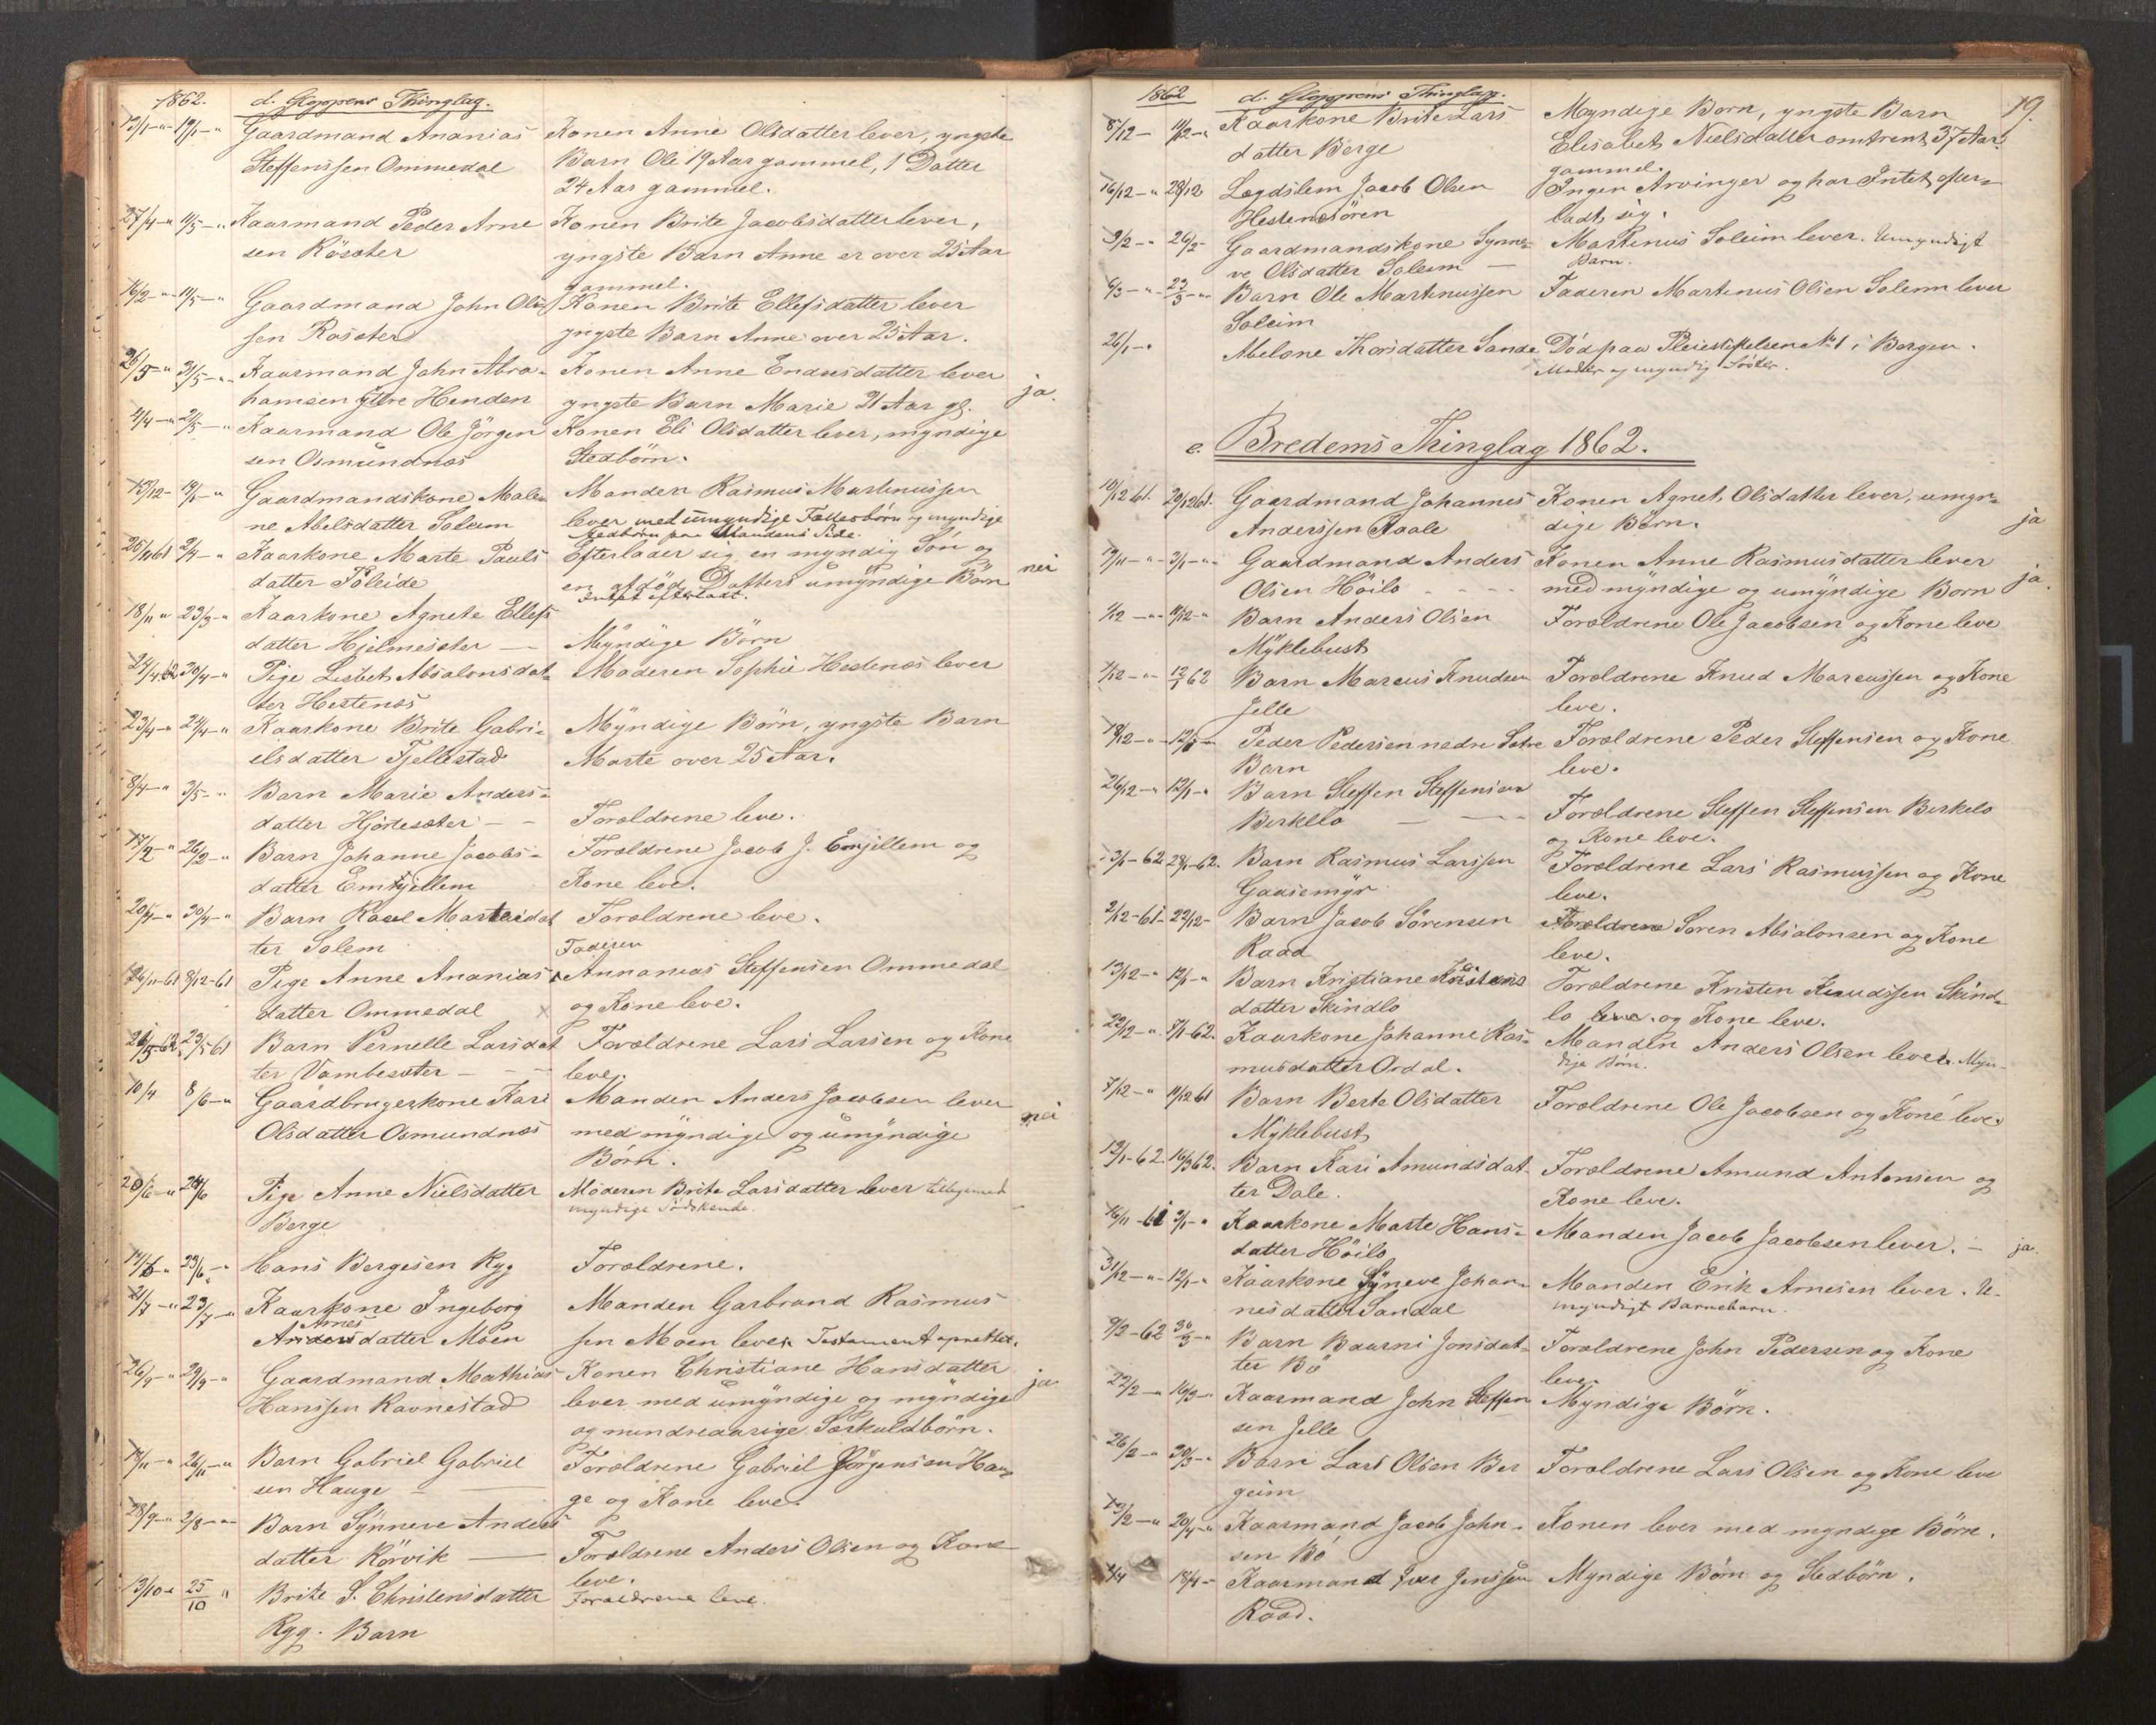 1862. d. Gloppens Thinglag.
13/1 -"- 19/1 -"- Gaardmand Ananias Konen Anne Olsdatter lever, yngste
Steffenssen Ommedal Barn Ole 19 Aar gammel, 1 Datter
24 Aar gammel.
27/4 -"- 11/5 -"- Kaarmand Peder Arne Konen Brite Jacobsdatter lever,
sen Rösæter yngste Barn Anne er over 25 Aar
gammel.
16/2 -"- 11/5 -"- Gaardmand John Olis Konen Brite Ellefsdatter lever
sen Rösæter yngste Barn Anne over 25 Aar.
26/5 -"- 31/5 -"- Kaarmand John Abra- Konen Anne Endresdatter lever
hamsen ytre Henden yngste Barn Marie 21 Aar gl. ja.
4/4 -"- 2/5 -"- Kaarmand Ole Jörgen Konen Eli Olsdatter lever, myndige
sen Osmundnæs Stedbörn.
15/12 - 19/1 -"- Gaardmandskone Male- Manden Rasmus Martinussen
ne Abelsdatter Soleim lever med umyndige Fællesbörn og myndige
Stedbörn paa Mandens Side.
25/11 61 2/4 -"- Kaarkone Marte Pauls Efterlader sig en myndig Sön og
datter Föleide en afdöd Datters umyndige Börn nei
Intet efterladt.
18/11 " 23/3 -"- Kaarkone Agnete Ellefs
datter Hjelmesæter — Myndige Börn
24/4 62 30/4 -"- Pige Lisbet Absalonsdat- Moderen Sophie Hestenæs lever
ter Hestenæs
23/4 -"- 24/4 -"- Kaarkone Brite Gabri- Myndige Börn, yngste Barn
elsdatter Fjellestad Marte over 25 Aar.
8/4 -"- 3/5 -"- Barn Marie Anders-
datter Hjortesæter — Forældrene leve.
17/2 -"- 26/2 -"- Barn Johanne Jacobs- Forældrene Jacob J. Emjellem og
datter Emhjellem Kone leve.
20/4 -"- 30/4 -"- Barn Rael Martasdat Forældrene leve.
ter Solem Faderen
26/11-61 8/12-61 Pige Anne Ananias Annanias Steffensen Ommedal
datter Ommedal og Kone leve.
21/5-62 23/5 61 Barn Pernelle Larsdat Forældrene Lars Larsen og Kone
ter Vambesæter — leve.
10/4 8/6 -"- Gaardbrugerkone Kari Manden Anders Jacobsen lever
Olsdatter Osmundnæs med myndige og umyndige nei
Börn.
20/6 -"- 24/6 Pige Anne Nielsdatter Moderen Brite Larsdatter lever tilligemed
Berge myndige Södskende.
14/6 " 23/6 -"- Hans Bergesen Ryg Forældrene.
21/7 -"- 23/7 -"- Kaarkone Ingeborg Manden Garbrand Rasmus
Arnes
Andersdatter Moen sen Moen lever. Testament oprettet.
26/9 -"- 29/9 -"- Gaardmand Mathias Konen Christiane Hansdatter
Hanssen Ravnestad lever med umyndige og myndige ja
og mindreaarige Særkuldbörn.
14/11 -"- 26/11 -"- Barn Gabriel Gabriel Forældrene Gabriel Jörgensen Hau
sen Hauge — ge og Kone lever.
28/9 -"- 2/8 -"- Barn Synneve Anders
datter Rörvik — Forældrene Anders Olsen og Kone
leve.
13/10 - 25/10 " Brite S. Christensdatter Forældrene leve.
Ryg. Barn
1862 d. Gloppens Thinglag. 19.
5/12 - 11/12 -"- Kaarkone Brite Lars Myndige Börn, yngste Barn
datter Berge Elisabet Nielsdatter omtrent 37 Aar
gammel.
16/12 -"- 28/12 Lægdslem Jacob Olsen Ingen Arvinger og har Intet efter-
Hestenesören ladt sig.
9/2 -"- 26/2 - Gaardmandskone Synne- Martinus Soleim lever. Umyndigt
ve Olsdatter Soleim — Barn.
6/3 -"- 23/3 -"- Barn Ole Martinussen Faderen Martinus Olsen Soleim lever
Soleim
26/1 -"- Abelone Thorsdatter Sande Död paa Pleiestiftelsen No 1 i Bergen.
Moder og myndig Söster.
e. Bredems Thinglag 1862.
10/12 61. 20/12 61. Gaardmand Johannes Konen Agnet, Olsdatter lever, umyn-
Anderssen Aaale dige Börn. ja
19/11 -"- 3/1 -"- Gaardmand Anders Konen Anne Rasmusdatter lever
Olsen Höilo - - - med myndige og umyndige Börn ja.
1/12 -"- 11/12 -"- Barn Anders Olsen Forældrene Ole Jacobsen og Kone leve
Myklebust
4/12 -"- 12/1 62 Barn Marcus Knudsen Forældrene Knud Marcussen og Kone
Jelle leve.
18/12 -"- 12/1 - Peder Pedersen nedre Sætre Forældrene Peder Steffensen og Kone
Barn leve.
26/12 -"- 12/1 -"- Barn Steffen Steffensen Forældrene Steffen Steffensen Birkelo
Birkelo — og Kone leve.
3/1-62 28/1-62. Barn Rasmus Larssen Forældrene Lars Rasmussen og Kone
Gaasemyr leve.
2/12-61 22/12- Barn Jacob Sörensen Forældrene Sören Absalonsen og Kone
Raad leve.
13/12 -"- 12/1 -"- Barn Kristiane Kristens Forældrene Kristen Knudssen Skind-
datter Skindlo lo leve. og Kone leve.
22/12 -"- 7/1-62. Kaarkone Johanne Ras- Manden Anders Olsen lever. Myn-
musdatter Ordal. dige Börn.
7/12 -"- 11/12 61 Barn Berte Olsdatter Forældrene Ole Jacobsen og Kone leve.
Myklebust
12/1-62. 16/3 62. Barn Kari Amundsdat- Forældrene Amund Antonsen og
ter Dale. Kone leve.
16/11-61 3/1 -"- Kaarkone Marte Hans- Manden Jacob Jacobsen lever. — ja.
datter Höilo
31/12 -"- 12/1 -"- Kaarkone Syneve Johan- Manden Erik Arnesen lever. U-
nesdatter Sandal myndigt Barnebarn.
9/2-62 30/3 -"- Barn Baarni Jonsdat- Forældrene John Pedersen og Kone
ter Bö leve.
22/2 -"- 16/3 -"- Kaarmand John Steffen Myndige Börn.
sen Jelle
26/2 -"- 30/3 -"- Barn Lars Olsen Ber Forældrene Lars Olsen og Kone leve
geim
13/2 -"- 20/4 -"- Kaarmand Jacob John- Konen lever med myndige Börn.
sen Bö
4/4 18/4 - Kaarmand Iver Jenssen Myndige Börn og Stedbörn.
Raad.